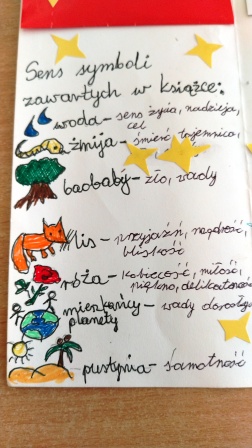 Sens symboli
zawartych w książce:
woda – sens życia, nadzieja,
cel
żmija – śmierć, tajemnica,
baobaby – zło, wady
lis – przyjaźń, mądrość
bliskość
róża – kobiecość, miłość,
piękno, delikatność
mieszkańcy – wady dorosłych
planety
pustynia – samotność